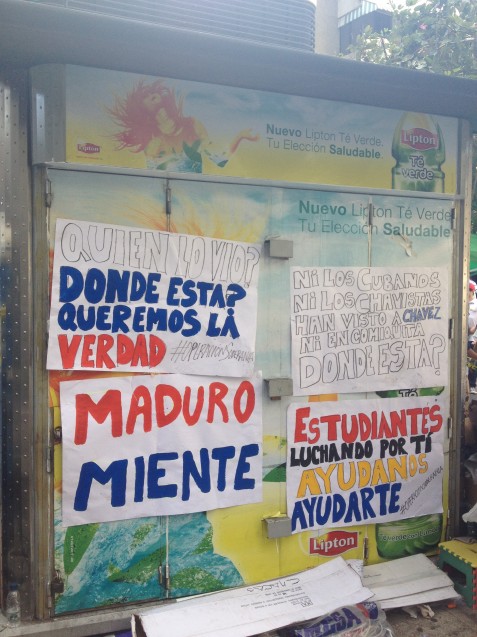 Lipton
Nuevo Lipton Té Verde.
Tu Elección Saludable.
Lipton
Té
verde
Nuevo Lipton Té Verde.
Tu Elección Saludable.
QUIEN LO VIO?
DONDE ESTA?
QUEREMOS LA
VERDAD
NI LOS CUBANOS
NI LOS CHAVISTAS
HAN VISTO A CHAVEZ
NI EN COMIQUITA
DONDE ESTA?
MADURO
MIENTE
ESTUDIANTES
LUCHANDO POR TI
AYUDANOS
AYUDARTE
Té
Lipton
CARACAS